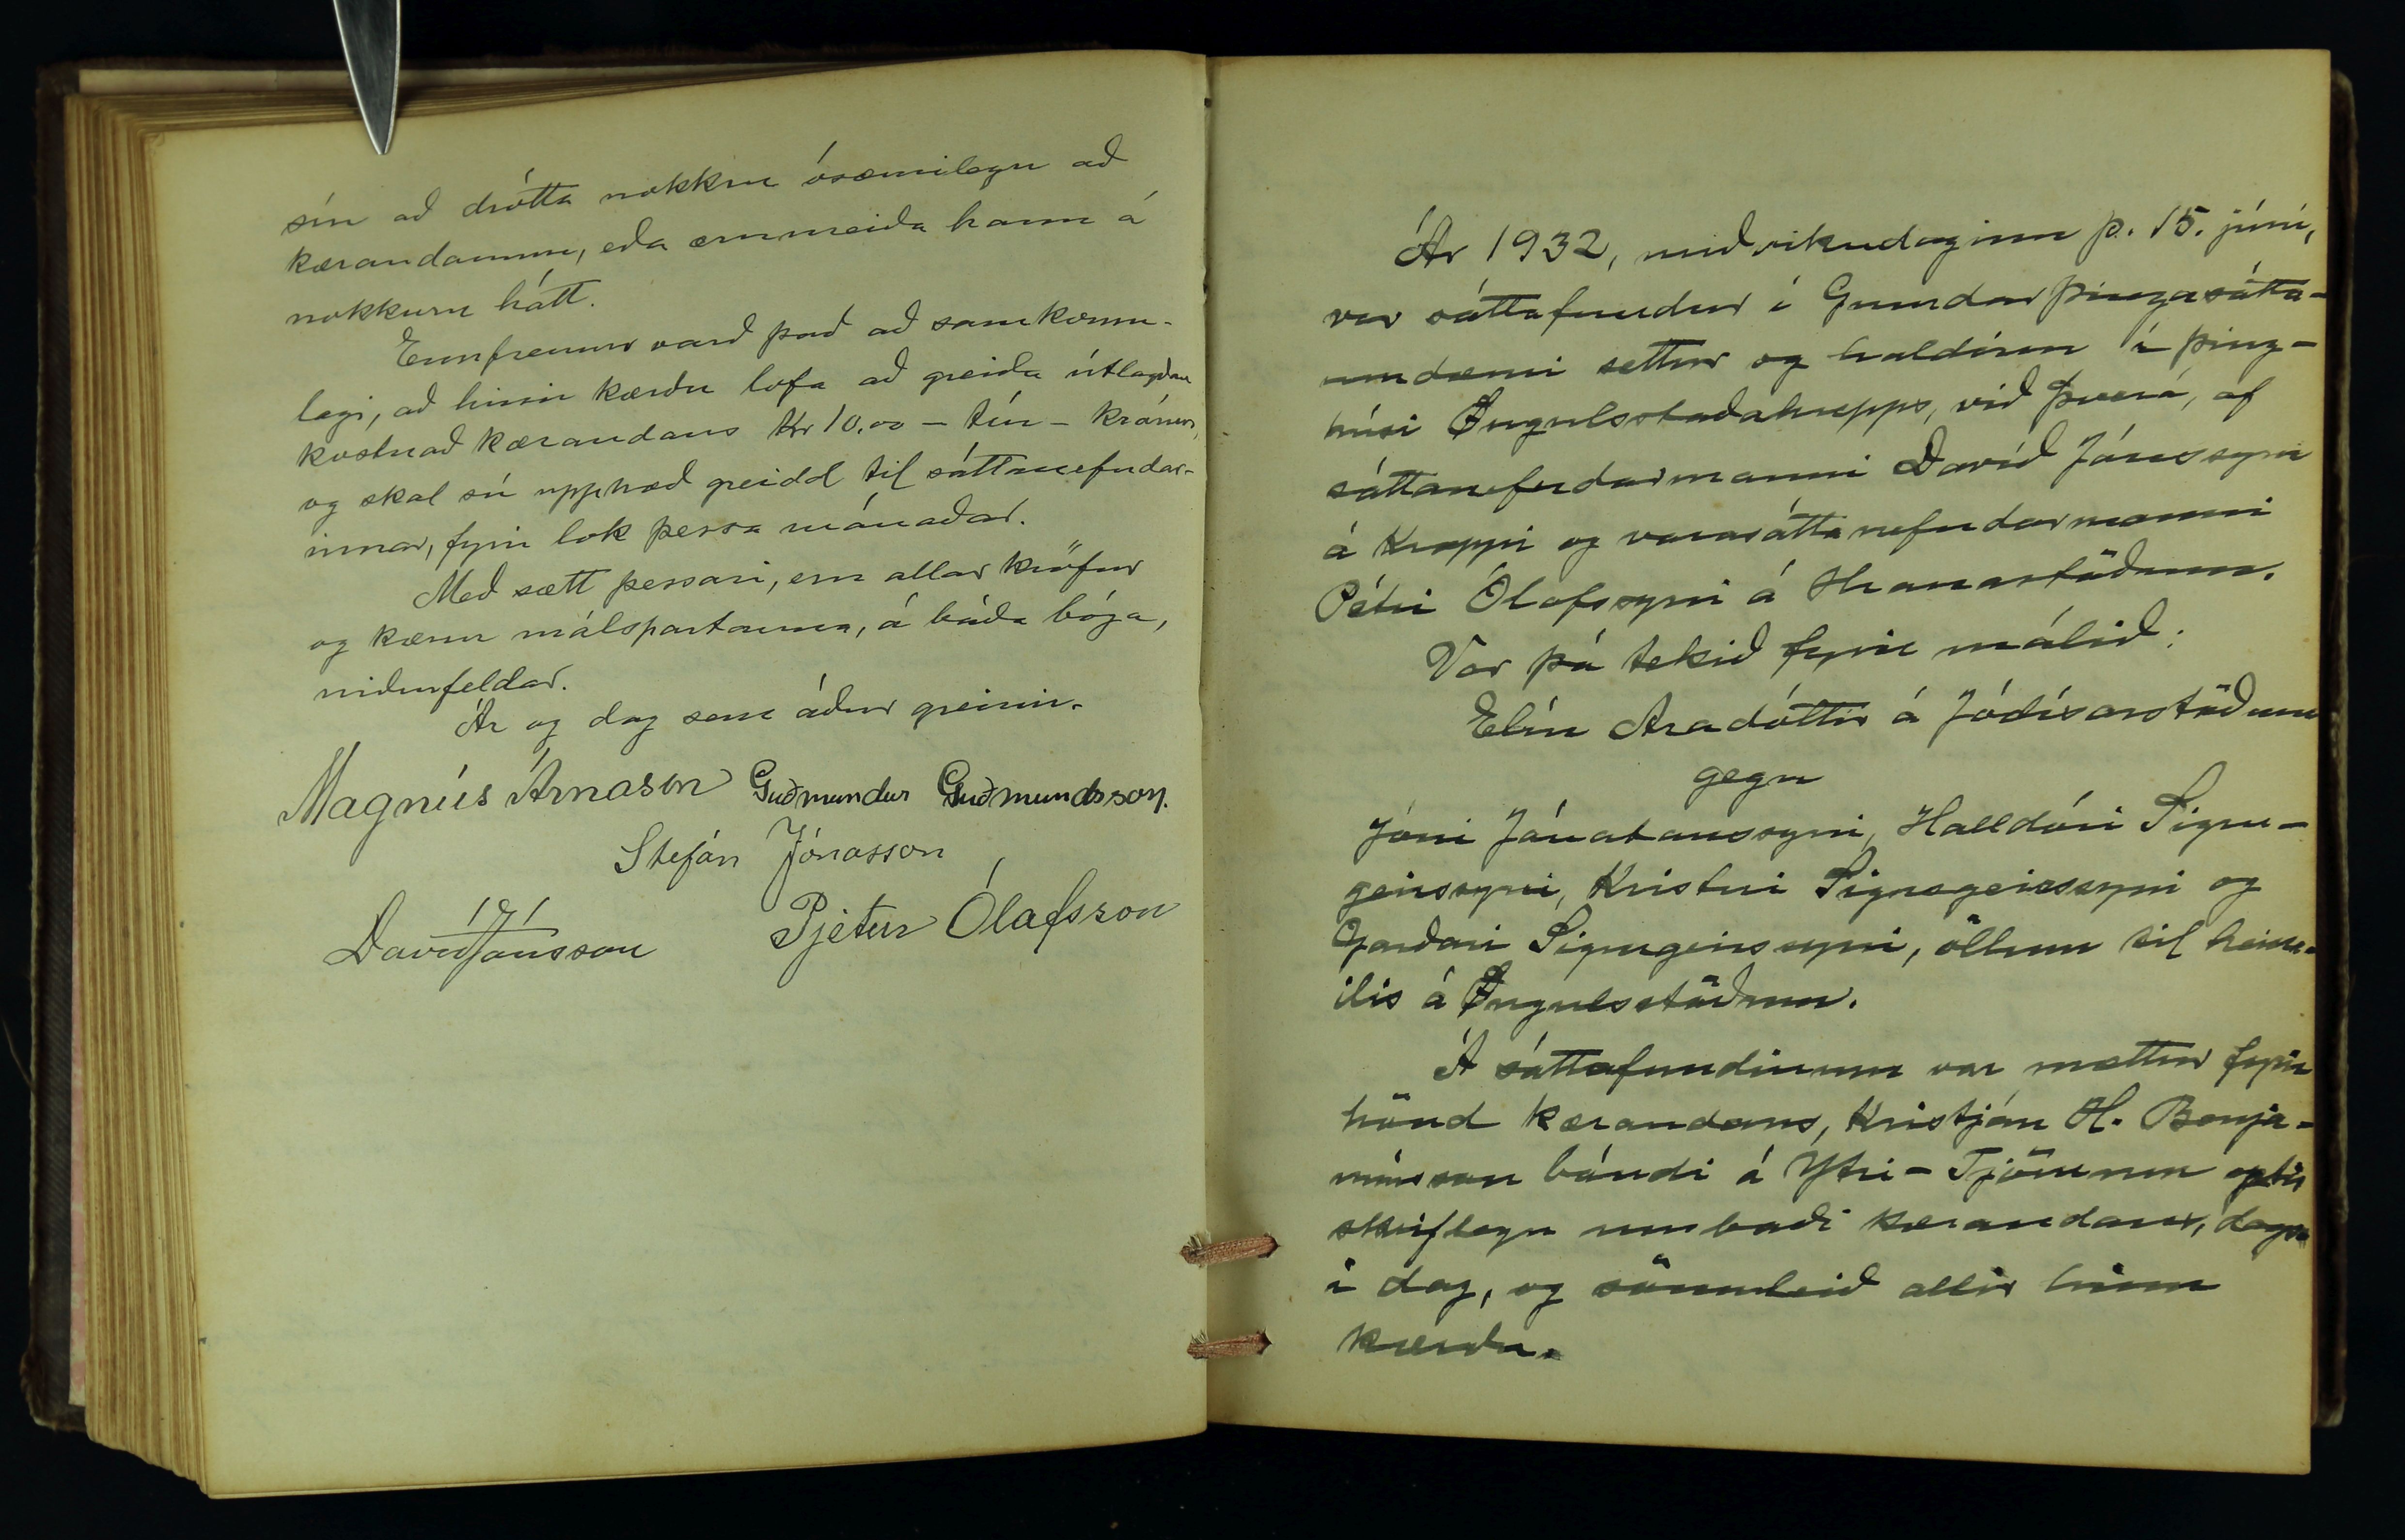 sín að drótta nokkru ósæmilegu að
kærandanum, eða ærumeiða hann á
nokkurn hátt.
Ennfremur varð það að samkomu-
lagi, að hinir kærðu lofa að greiða útlagðan
kostnað kærandans Kr 10.00 - tíu - krónur,
og skal sú upphæð greidd til sáttanefndar-
innar, fyrir lok þessa mánaðar.
Með sætt þessari, eru allar kröfur
og kærur málspartanna, á báða bóga,
niðurfeldar.
Ár og dag sem áður greinir.
Magnús Árnason Guðmundur Guðmundsson.
Stefán Jónasson
Davíð Jónsson Pjetur Ólafsson
Ár 1932, miðvikudaginn þ. 15. júní,
var sáttafundur í Grundarþingasátta-
umdæmi settur og haldinn í þing-
húsi Öngulsstaðahrepps, við Þverá, af
sáttanefndarmanni Davíð Jónssyni
á Kroppi og varasáttanefndarmanni
Pétri Ólafssyni á Hranastöðum.
Var þá tekið fyrir málið:
Elín Aradóttir á Jódísarstöðum
gegn
Jóni Jónatanssyni, Halldóri Sigur-
geirssyni, Kristni Sigurgeirssyni og
Garðari Sigurgeirssyni, öllum til heim-
ilis á Öngulsstöðum.
Á sáttafundinum var mættur fyrir
hönd kærandans, Kristján H. Benja-
mínsson bóndi á Ytri-Tjörnum eptir
skriflegu umboði kærandans, dags.
í dag, og sömuleiðis allir hinir
kærðu.